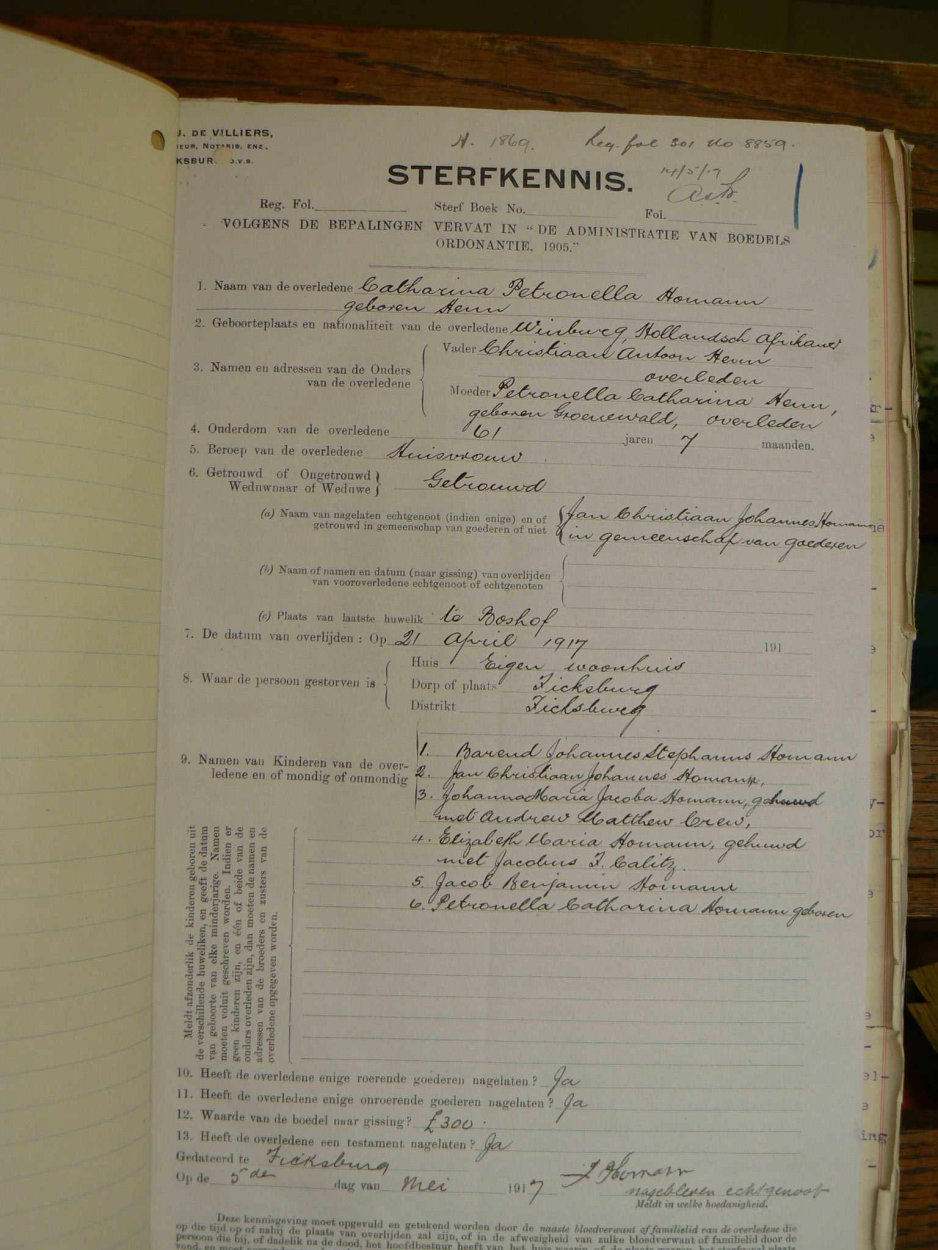 J. DE VILLIERS,
EUR, NOTARIS, ENZ.,
KSBUR O.V.S.
A. 1869. Reg. fol 301 No 8859.
STERFKENNIS.
14/5/17
Reg. Fol. Sterf Boek No. Fol.
VOLGENS DE BEPALINGEN VERVAT IN "DE ADMINISTRATIE VAN BOEDELS
ORDONANTIE, 1905."
1. Naam van de overledene Catharina Petronella Homann
geboren Henn
2. Geboorteplaats en nationaliteit van de overledene Winburg, Hollandsch Afrikaner
3. Namen en adressen van de Ouders van de overledene
Vader Christiaan Antoon Henn
overleden
Moeder Petronella Catharina Henn,
geboren Groenewald, overleden
4. Ouderdom van de overledene 61 jaren 7 maanden.
5. Beroep van de overledene Huisvrouw
6. Getrouwd of Ongetrouwd
Weduwnaar of Weduwe Getrouwd
(a) Naam van nagelaten echtgenoot (indien enige) en of
getrouwd in gemeenschap van goederen of niet
Jan Christiaan Johannes Homann
in gemeenschap van goederen
(b) Naam of namen en datum (naar gissing) van overlijden
van vooroverledene echtgenoot of echtgenoten
(c) Plaats van laatste huwelik te Boshof
7. De datum van overlijden : Op 21 April 1917 191
8. Waar de persoon gestorven is
Huis Eigen woonhuis
Dorp of plaats Ficksburg
Distrikt Ficksburg
9. Namen van Kinderen van de over-
ledene en of mondig of onmondig
1. Barend Johannes Stephanus Homann
2. Jan Christiaan Johannes Homann,
3. Johanna Maria Jacoba Homann, gehuwd
met Andrew Matthew Crew,
4. Elizabeth Maria Homann, gehuwd
met Jacobus F. Calitz.
5. Jacob Benjamin Homann
6. Petronella Catharina Homann geboren
Meldt afzonderlik de kinderen geboren uit
de verschillende huweliken, en geeft de datum
van geboorte van elke minderjarige. Namen
moeten voluit geschreven worden. Indien er
geen kinderen zijn, en één of beide van de
ouders overleden zijn, dan moeten de namen en
adressen van de broeders en zusters van de
overledene opgegeven worden.
10. Heeft de overledene enige roerende goederen nagelaten ? Ja
11. Heeft de overledene enige onroerende goederen nagelaten ? Ja
12. Waarde van de boedel naar gissing? £300.
13. Heeft de overledene een testament nagelaten ? Ja
Gedateerd te Ficksburg
Op de 5de dag van Mei 1917
J Homann
nagebleven echtgenoot
Meldt in welke hoedanigheid.
Deze kennisgeving moet opgevuld en getekend worden door de naaste bloedverwant of familielid van de overledene die
op die tijd op of nabij de plaats van overlijden zal zijn, of in de afwezigheid van zulke bloedverwant of familielid door de
persoon die bij, of dadelik na de dood, het hoofdbestuur heeft van het huis